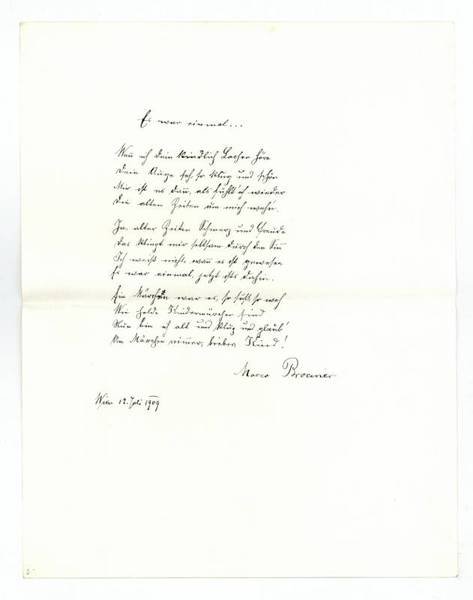 Es war einmal...
Wenn ich dein kindlich Lachen höre
Dein Auge seh, so klug und schön
Mir ist es dann, als fühlt' ich wieder
Die alten Zeiten um mich wehn.
Ja, alter Zeiten Schmerz und Freude
Das klingt mir seltsam durch den Sinn
Ich weiß nicht, wann es ist gewesen
Es war einmal, jetzt ists dahin.
Ein Märchen war es, so süß, so weh
Wie holde Kindermärchen sind
Nun bin ich alt und klug und glaub'
An Märchen nimmer, liebes Kind!
Marco Brociner
Wien 12. Juli 1909